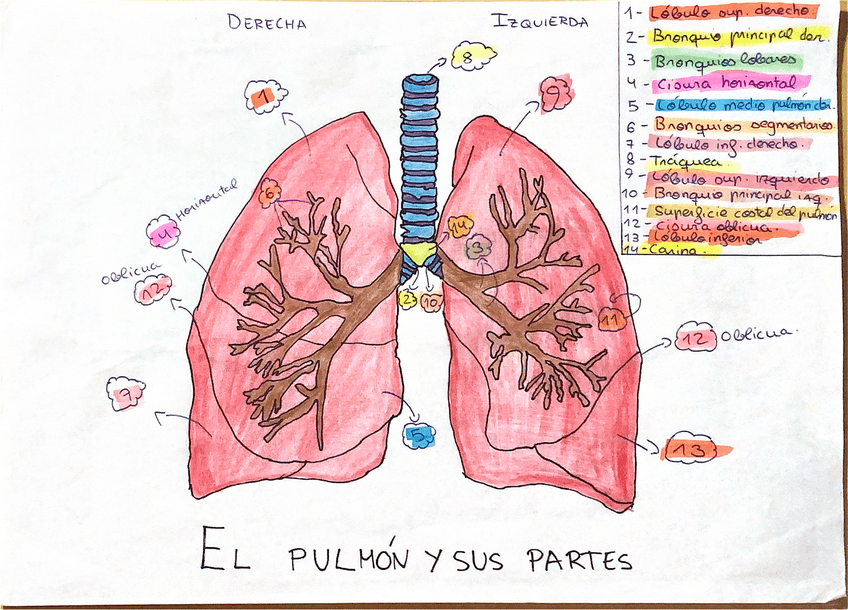 DERECHA
IZQUIERDA
1- Lóbulo sup. derecho.
2- Bronquio principal der.
3- Bronquios lobares
4- Cisura horizontal
5- Lóbulo medio pulmón der.
6- Bronquios segmentarios
7- Lóbulo inf. derecho.
8- Tráquea.
9- Lóbulo sup. izquierdo
10- Bronquio principal izq.
11- Superficie costal del pulmón
12- Cisura oblicua.
13- Lóbulo inferior
14- Carina.
8
1
9
6
4 Horizontal
14
3
Oblicua
12
2
10
11
12 Oblicua.
7
5
13
EL PULMÓN Y SUS PARTES